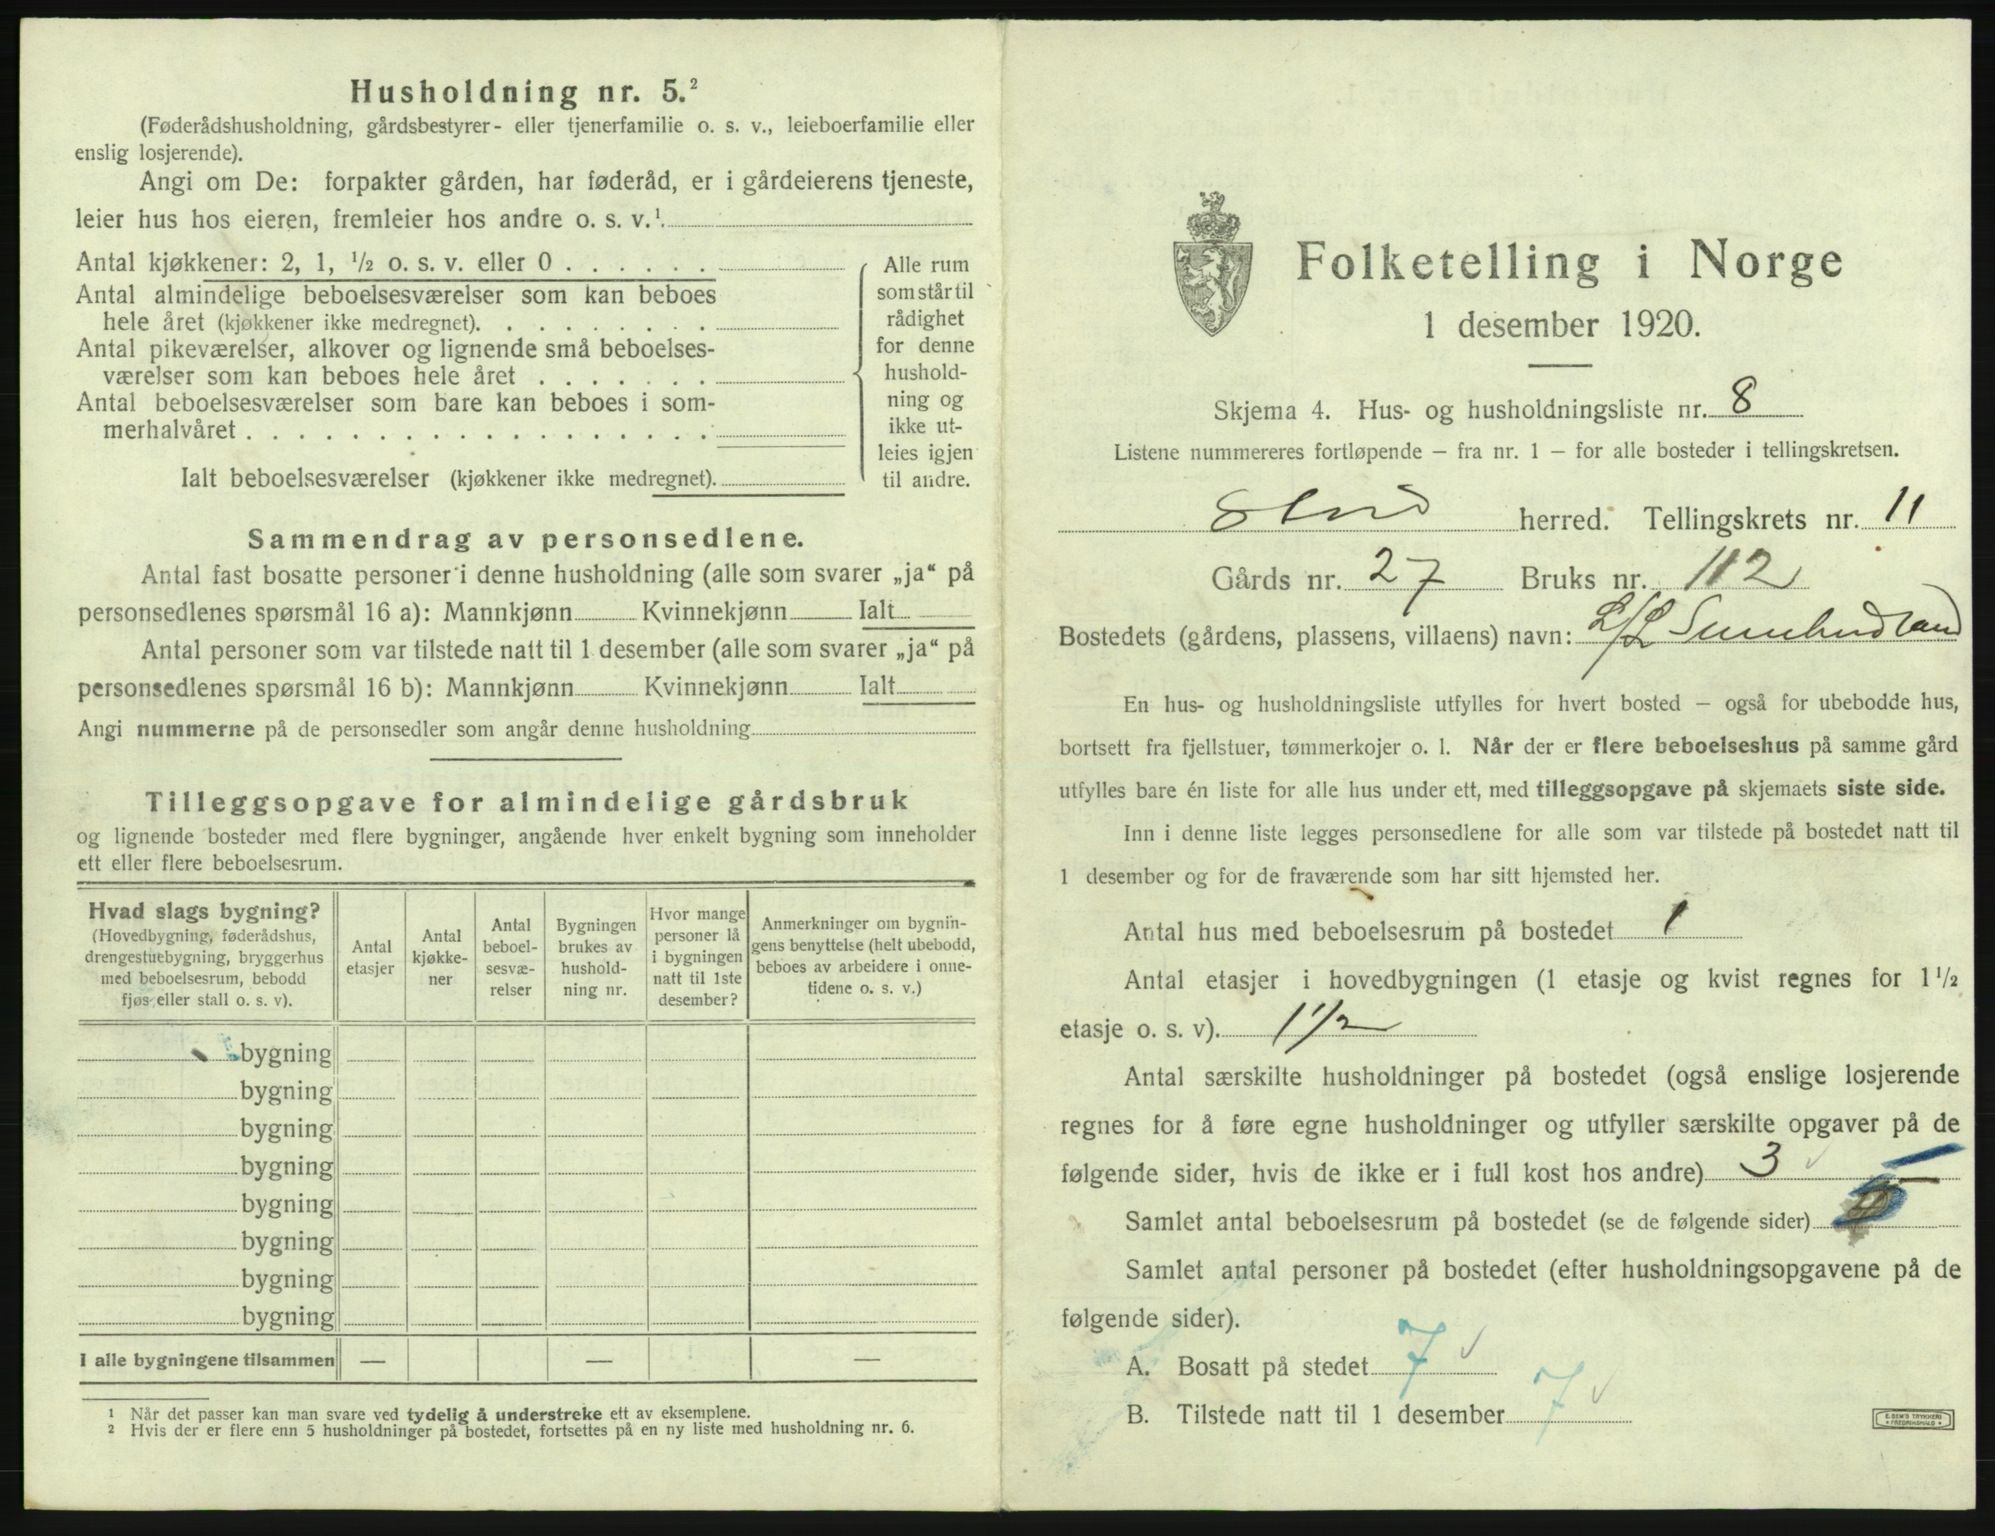 Husholdning nr. 5.²
(Føderådshusholdning, gårdsbestyrer- eller tjenerfamilie o. s. v., leieboerfamilie eller
enslig losjerende).
Angi om De: forpakter gården, har føderåd, er i gårdeierens tjeneste,
leier hus hos eieren, fremleier hos andre o. s. v.¹
Antal kjøkkener: 2, 1, ¹/₂ o. s. v. eller 0 . . . . . .
Antal almindelige beboelsesværelser som kan beboes
hele året (kjøkkener ikke medregnet). . . . . . . . .
Antal pikeværelser, alkover og lignende små beboelses-
værelser som kan beboes hele året . . . . . . .
Antal beboelsesværelser som bare kan beboes i som-
merhalvåret . . . . . . . . . . . . . . . . . .
Ialt beboelsesværelser (kjøkkener ikke medregnet).
Alle rum
som står til
rådighet
for denne
hushold-
ning og
ikke ut-
leies igjen
til andre.
Sammendrag av personsedlene.
Antal fast bosatte personer i denne husholdning (alle som svarer „ja“ på
personsedlenes spørsmål 16 a): Mannkjønn Kvinnekjønn Ialt
Antal personer som var tilstede natt til 1 desember (alle som svarer „ja“ på
personsedlenes spørsmål 16 b): Mannkjønn Kvinnekjønn Ialt
Angi nummerne på de personsedler som angår denne husholdning
Tilleggsopgave for almindelige gårdsbruk
og lignende bosteder med flere bygninger, angående hver enkelt bygning som inneholder
ett eller flere beboelsesrum.
Hvad slags bygning?
(Hovedbygning, føderådshus,
drengestuebygning, bryggerhus
med beboelsesrum, bebodd
fjøs eller stall o. s. v).
Antal
etasjer
Antal
kjøkke-
ner
Antal
beboel-
sesvæ-
relser
Bygningen
brukes av
hushold-
ning nr.
Hvor mange
personer lå
i bygningen
natt til 1ste
desember?
Anmerkninger om bygnin-
gens benyttelse (helt ubebodd,
beboes av arbeidere i onne-
tidene o. s. v.)
bygning
bygning
bygning
bygning
bygning
bygning
bygning
bygning
I alle bygningene tilsammen — — —
¹ Når det passer kan man svare ved tydelig å understreke ett av eksemplene.
² Hvis der er flere enn 5 husholdninger på bostedet, fortsettes på en ny liste med husholdning nr. 6.
Folketelling i Norge
1 desember 1920.
Skjema 4. Hus- og husholdningsliste nr. 8
Listene nummereres fortløpende – fra nr. 1 – for alle bosteder i tellingskretsen.
Stord herred. Tellingskrets nr. 11
Gårds nr. 27 Bruks nr. 112
Bostedets (gårdens, plassens, villaens) navn: L/L Sunnhordland
En hus- og husholdningsliste utfylles for hvert bosted – også for ubebodde hus,
bortsett fra fjellstuer, tømmerkojer o. l. Når der er flere beboelseshus på samme gård
utfylles bare én liste for alle hus under ett, med tilleggsopgave på skjemaets siste side.
Inn i denne liste legges personsedlene for alle som var tilstede på bostedet natt til
1 desember og for de fraværende som har sitt hjemsted her.
Antal hus med beboelsesrum på bostedet 1
Antal etasjer i hovedbygningen (1 etasje og kvist regnes for 1 ¹/₂
etasje o. s. v). 1 1/2
Antal særskilte husholdninger på bostedet (også enslige losjerende
regnes for å føre egne husholdninger og utfyller særskilte opgaver på de
følgende sider, hvis de ikke er i full kost hos andre) 3
Samlet antal beboelsesrum på bostedet (se de følgende sider)
Samlet antal personer på bostedet (efter husholdningsopgavene på de
følgende sider).
A. Bosatt på stedet 7
B. Tilstede natt til 1 desember 7
E. SEM'S TRYKKERI
FREDRIKSHALD